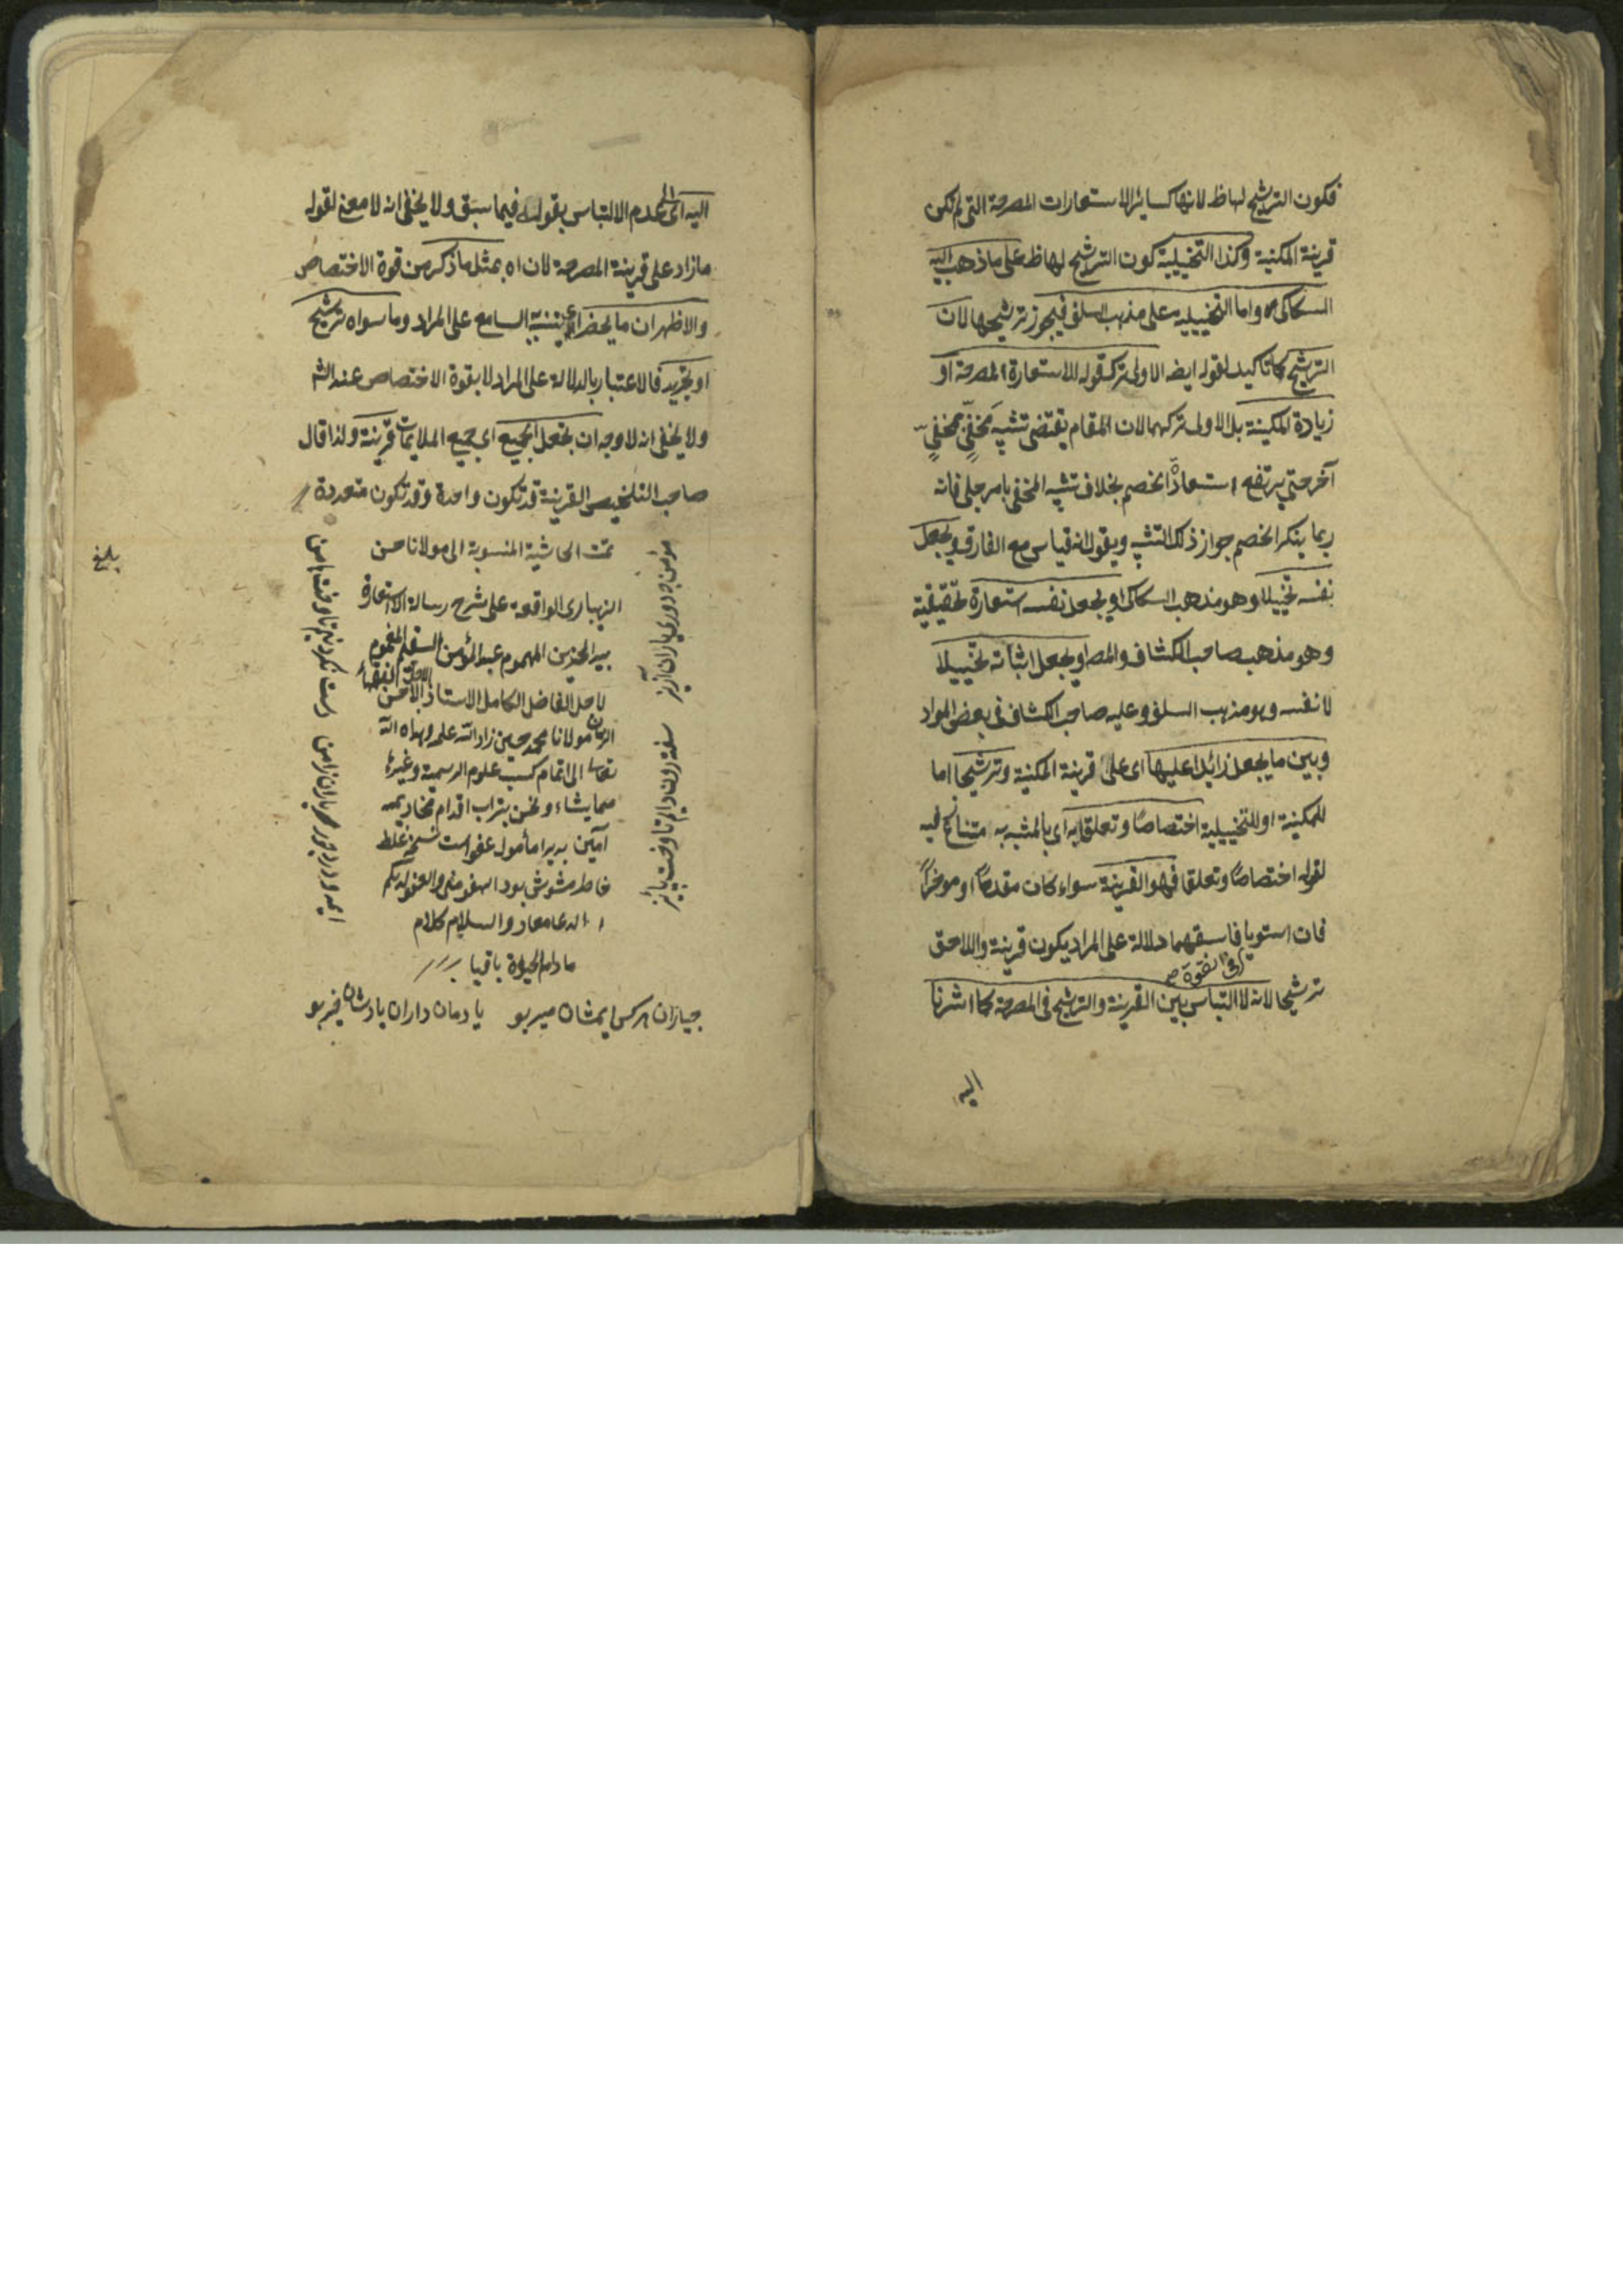 فكون الترشيح لهاظ لانها كسائر الاستعارات المصرحة التى لم تكن
قرينة المكنية وكذا التخييلية كون الترشيح لهاظ على ما ذهب اليه
السكاكى واما التخييلية على مذهب السلف فيجوز ترشيحها لان
الترشيح كالتاكيد لقوله ايضه الاولى ترك قوله للاستعارة المصرحة او
زيادة المكنية بل الاولى تركهما لان المقام يقتضى تشبيه مخفى بمخفى
آخر حتى يرتفع استعاذة الخصم بخلاف تشبيه المخفى بامر جلى فانه
ربما ينكر الخصم جواز ذلك التشبيه ويقول انه قياس مع الفارق ويجعل
نفسه تخييلا وهو مذهب السكاكى او يجعل نفسه استعارة تحقيقية
وهو مذهب صاحب الكشاف والمصه او يجعل اثباته تخييلا
لا نفسه وهو مذهب السلف وعليه صاحب الكشاف فى بعض المواد
وبين ما يجعل زائدا عليها اى على قرينة المكنية وترشيحا اما
للمكنية او للتخييلية اختصاصا وتعلقا به اى بالمشبه به متنازع فيه
لقوله اختصاصا وتعلقا فهو القرينة سواء كان مقدما او موخرا
فان استويا فاسبقهما دلالة على المراد يكون قرينة واللاحق
فى القوة صح
ترشيحا لانه لا التباس بين القرينة والترشيح فى المصرحة كما اشرنا
اليه
اليه اى الى عدم الالتباس بقوله فيما سبق ولا يخفى انه لا معنى لقوله
مازاد على قرينة المصرحة لان اه بمثل ما ذكر من قوة الاختصاص
والاظهر ان ما يحضر اى ينبيه السامع على المراد وما سواه ترشيح
او تجريد فالاعتبار بالدلالة على المراد لا بقوة الاختصاص عند الشم
ولا يخفى انه لا وجه ان يجعل الجميع اى جميع الملايمات قرينة ولذا قال
صاحب التلخيص القرينة قد تكون واحدة وقد تكون متعددة
تمت الحاشية المنسوبة الى مولانا حسن
الزيبارى الواقعة على شرح رسالة الاستعارة
بيد الحزين المهموم عبد المؤمن السقلم المغموم
لاجل الفاضل الكامل الاستاذ الاحسن
الزمان مولانا محمد حسين زاد الله علمه وهداه الله
تعالى الى اتمام كسب علوم الرسمية وغيره
مما يشاء ونحن بتراب اقدام مخاديمه
آمين پديرا مأمول عفو است نسخ غلط
خاطر مشوش بود السهو منى والعفو لديكم
الدعا معاد والسلام كلام
مادام الحيوة باقيا
يادمان داران يادشان خير بو
بلغ